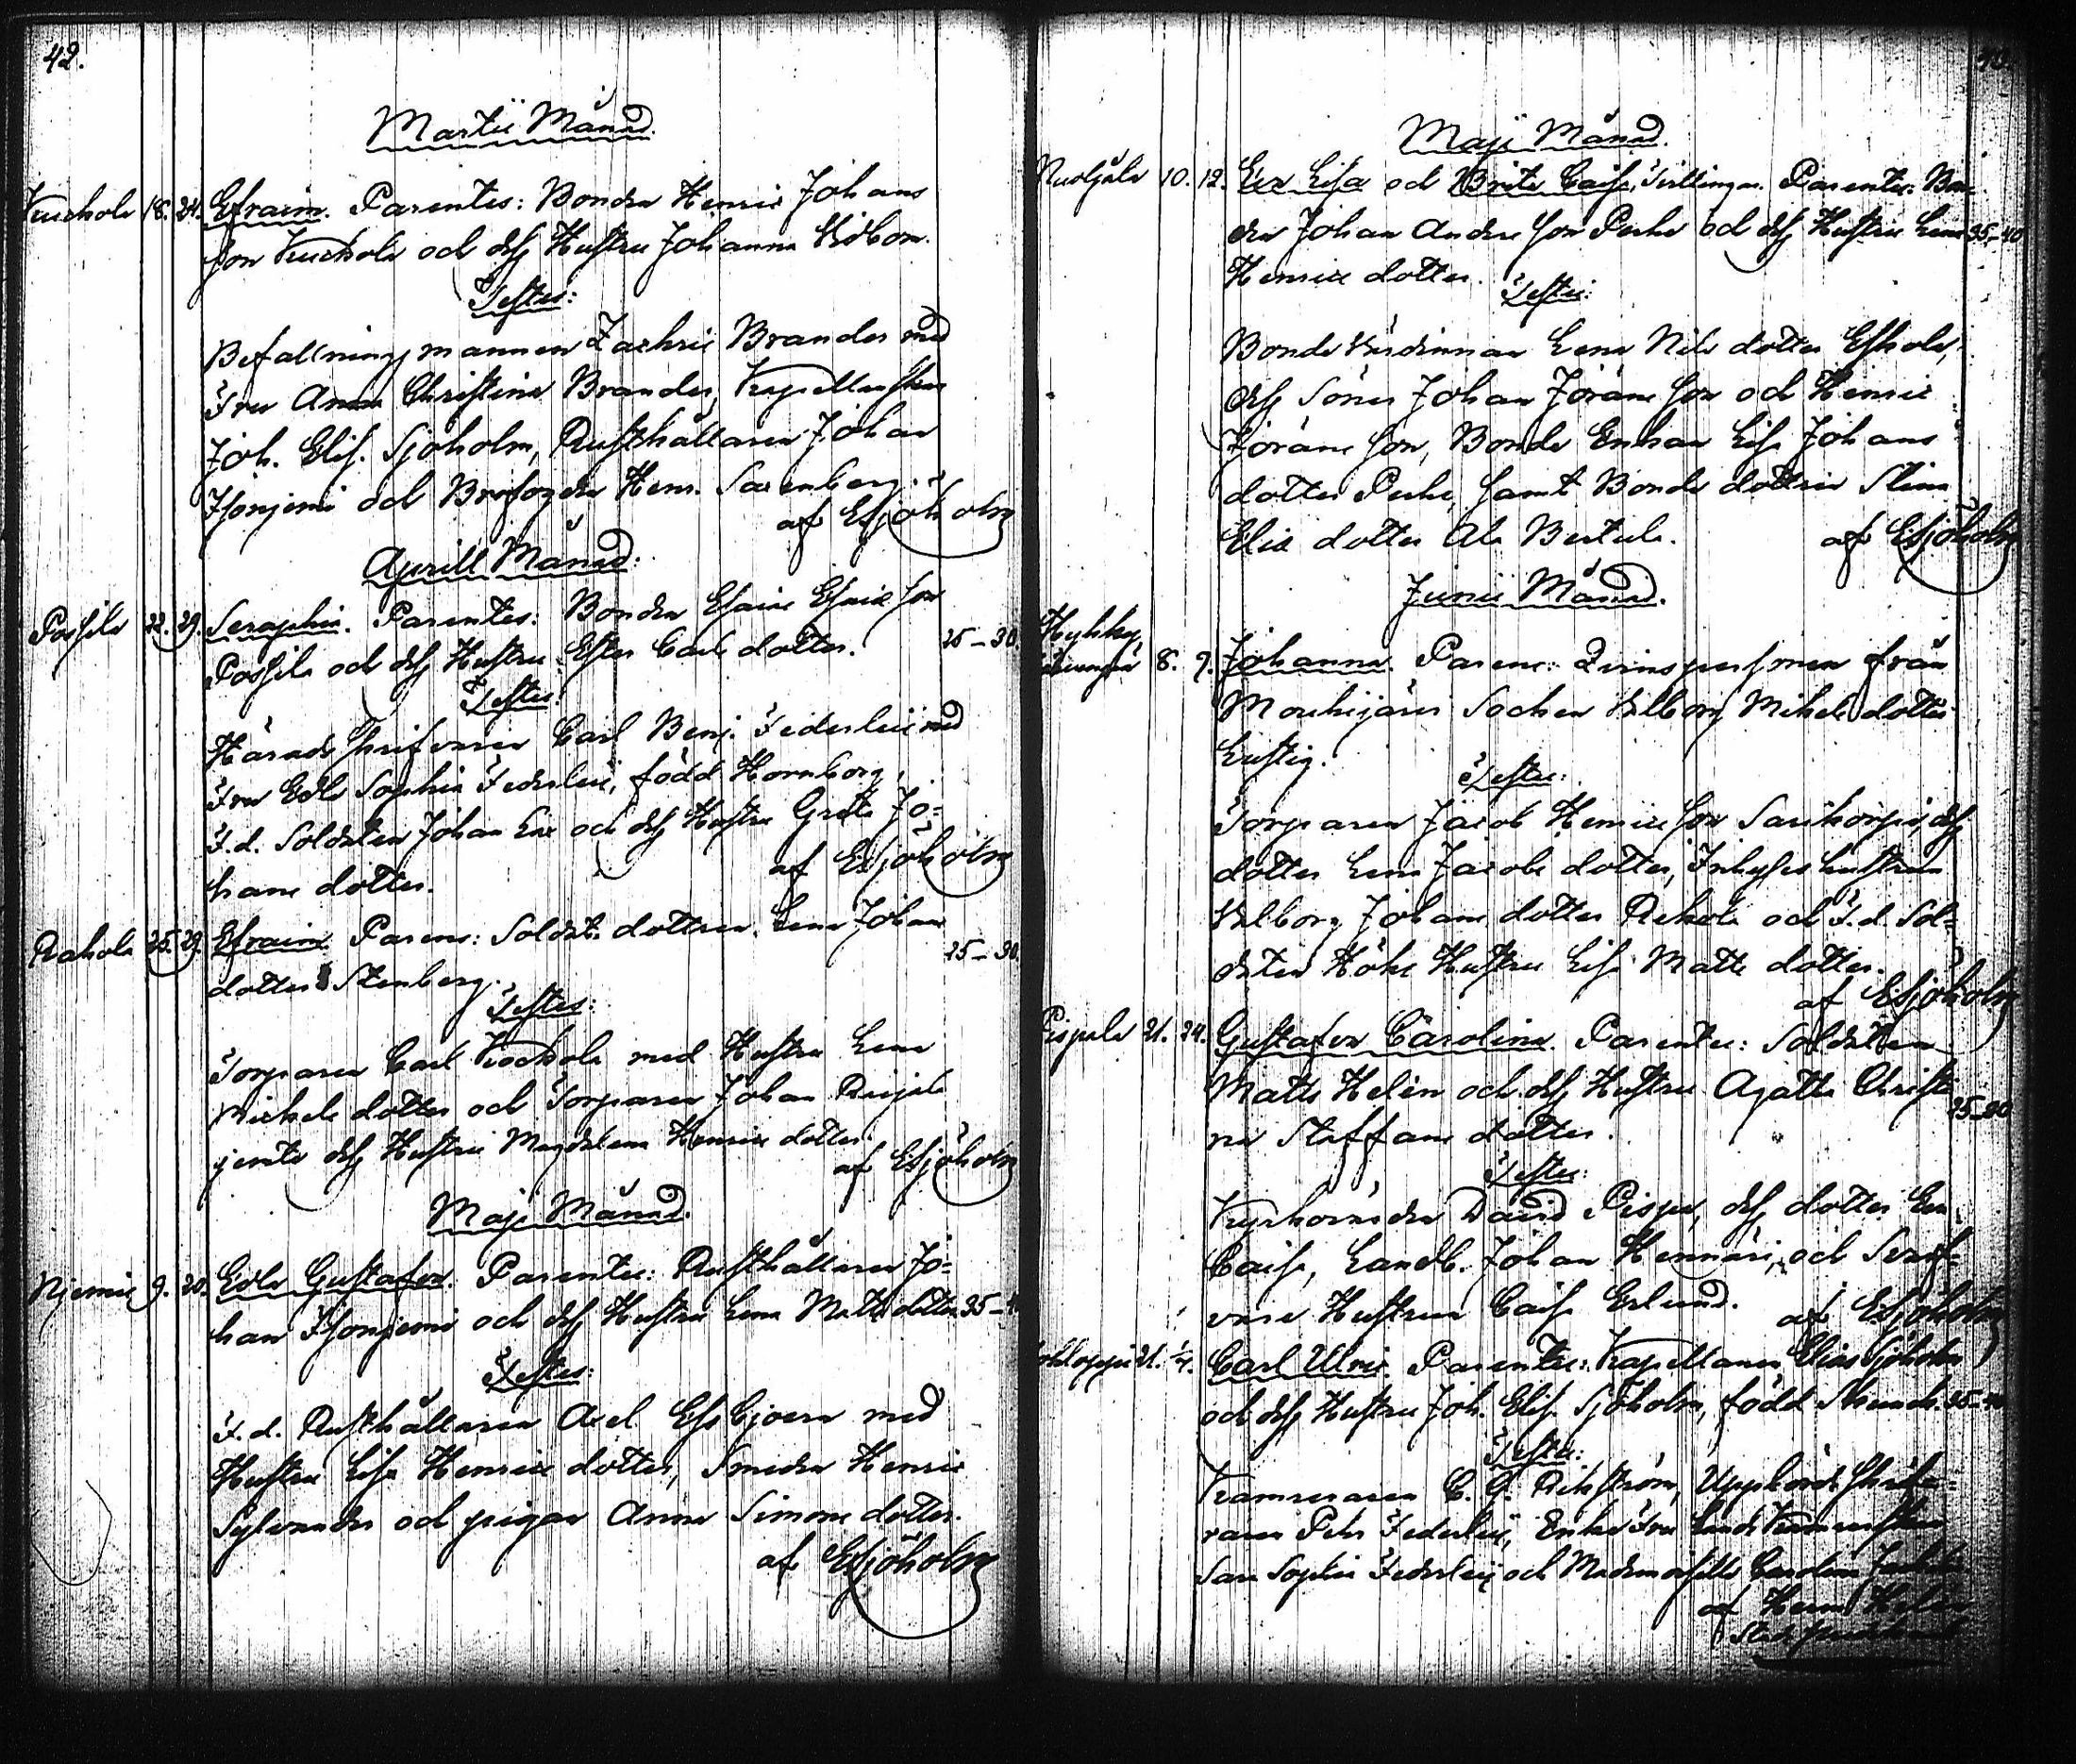 42.
Martii Månad.
Kuckola 18. 24. Efraim. Parentes: Bonden Henric Johans
son Kuckola och dess Hustru Johanna Widbom.
Testes:
Befallningsmannen Zachris Brander med
Fru Anna Christina Brander, Kapellanskan
Joh. Elis. Sjöholm, Rusthållaren Johan
Isonjemi och Brofogden Henr. Sarenberg.
af ESjöholm
Aprill Månad:
Possila 22. 29. Seraphia. Parentes: Bonden Esaias Esaias son
Possila och dess Hustru Ester Carls dotter. 25–30.
Testes:
Härads skrifvaren Carl Benj. Federleij med
Fru Edla Sophia Federleij, född Hornborg,
F.d. Soldaten Johan Lax och dess Hustru Greta Jo=
hans dotter.
af ESjöholm
Rahola 25. 29. Efraim. Parens: Soldats dottren Lena Johans
dotter Stenberg. 25–30.
Testes:
Torparen Carl Kockola med Hustru Lena
Michels dotter och Torparen Johan
dess Hustru Magdalena Henrics dotter.
af ESjöholm
Maji Månad.
Njemis 9. 20. Edla Gustafva. Parentes: Rusthållaren Jo=
han Isonjemi och dess Hustru Lena Matts dotter 35–
Testes:
F.d. Rusthållaren Axel Essbjoern med
Hustru Lisa Henrics dotter, Smeden Henric
Sylvander och pigan Anna Simons dotter.
af ESjöholm
Maji Månad.
10. 12. Eva Lisa och Brita Caisa, Tvillingar. Parentes: Bon
den Johan Anders son Perho och dess Hustru Lena 35–40
Henrics dotter.
Testes:
Bonde Värdinnan Lena Nils dotter Eskola,
dess Söner Johan Jörans son och Henric
Jörans son, Bonde Enkan Lisa Johans
dotter Perho, samt Bonde dottren Stina
Elias dotter Ala Bertula.
af ESjöholm
Junii Månad.
8. 9. Johanna. Parens: Qvinspersonen från
Mouhijärvi Socken Walborg Mikels dotter
Lustig.
Testes:
Torparen Jacob Henrics son Sarikorpi, dess
dotter Lena Jacobs dotter, Inhyses hustrun
Walborg Johans dotter Rahola och F.d. Sol=
daten Höks Hustru Lisa Matts dotter.
af ESjöholm
Pispala 21. 24. Gustafva Carolina. Parentes: Soldaten
Matts Helin och dess Hustru Agatha Christi
na Staffans dotter. 25–30
Testes:
Kyrkovärden David Pispa, dess dotter Eva
Caisa, Landb. Johan Hennäri, och
Hustrun Caisa Erlund.
af ESjöholm
21. Carl Ulric. Parentes: Kapellanen Elias Sjöholm
och dess Hustru Joh. Elis. Sjöholm, född 35–40
Testes:
Kamreraren C. G. Rehström, Uppbörds skrif=
varen Pehr Federleij, Enke Fru Lands Kamrerskan
Sara Sophia Federleij och Mademoiselle Carolina
af